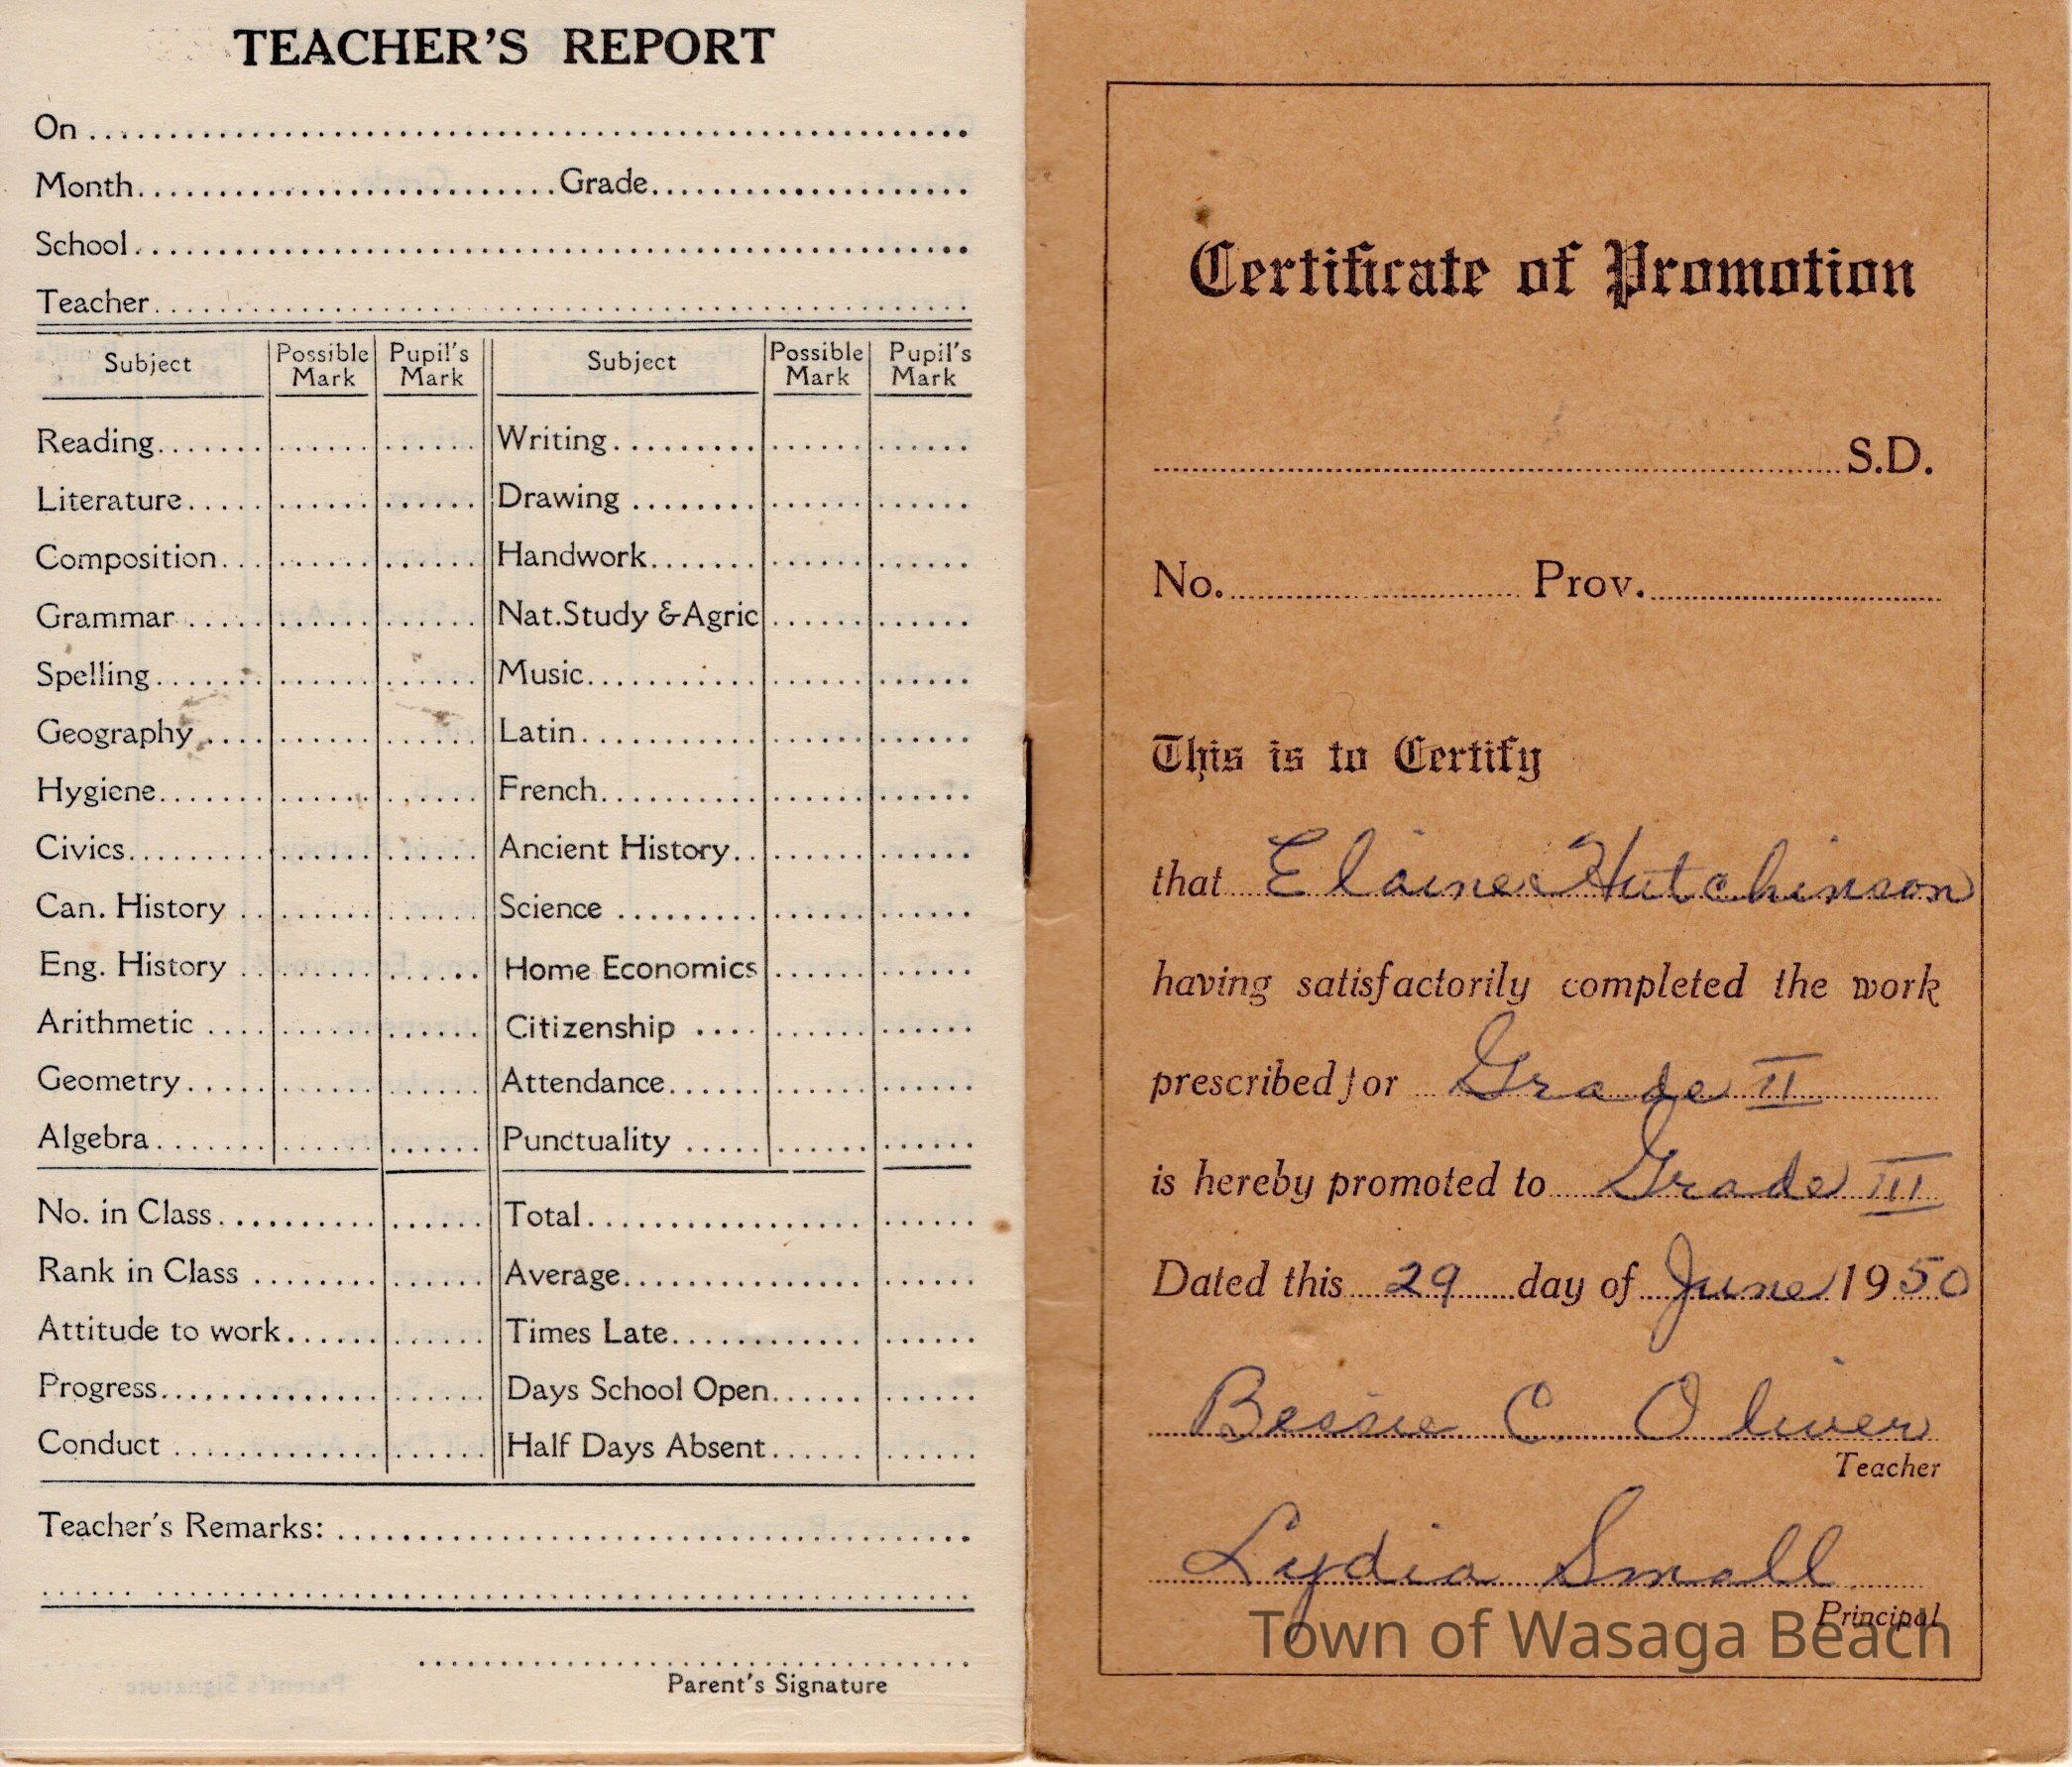 TEACHER'S REPORT
On
Month Grade
School
Teacher
Subject Possible Mark Pupil's Mark Subject Possible Mark Pupil's Mark
Reading Writing
Literature Drawing
Composition Handwork
Grammar Nat.Study &Agric
Spelling Music
Geography Latin
Hygiene French
Civics Ancient History
Can. History Science
Eng. History Home Economics
Arithmetic Citizenship
Geometry Attendance
Algebra Punctuality
No. in Class Total
Rank in Class Average
Attitude to work Times Late
Progress Days School Open
Conduct Half Days Absent
Teacher's Remarks:
Parent's Signature
Certificate of Promotion
S.D.
No. Prov.
This is to Certify
that Elaine Hutchinson
having satisfactorily completed the work
prescribed for Grade II
is hereby promoted to Grade III
Dated this 29 day of June 1950
Bessie C. Oliver
Teacher
Lydia Small
Principal
Town of Wasaga Beach